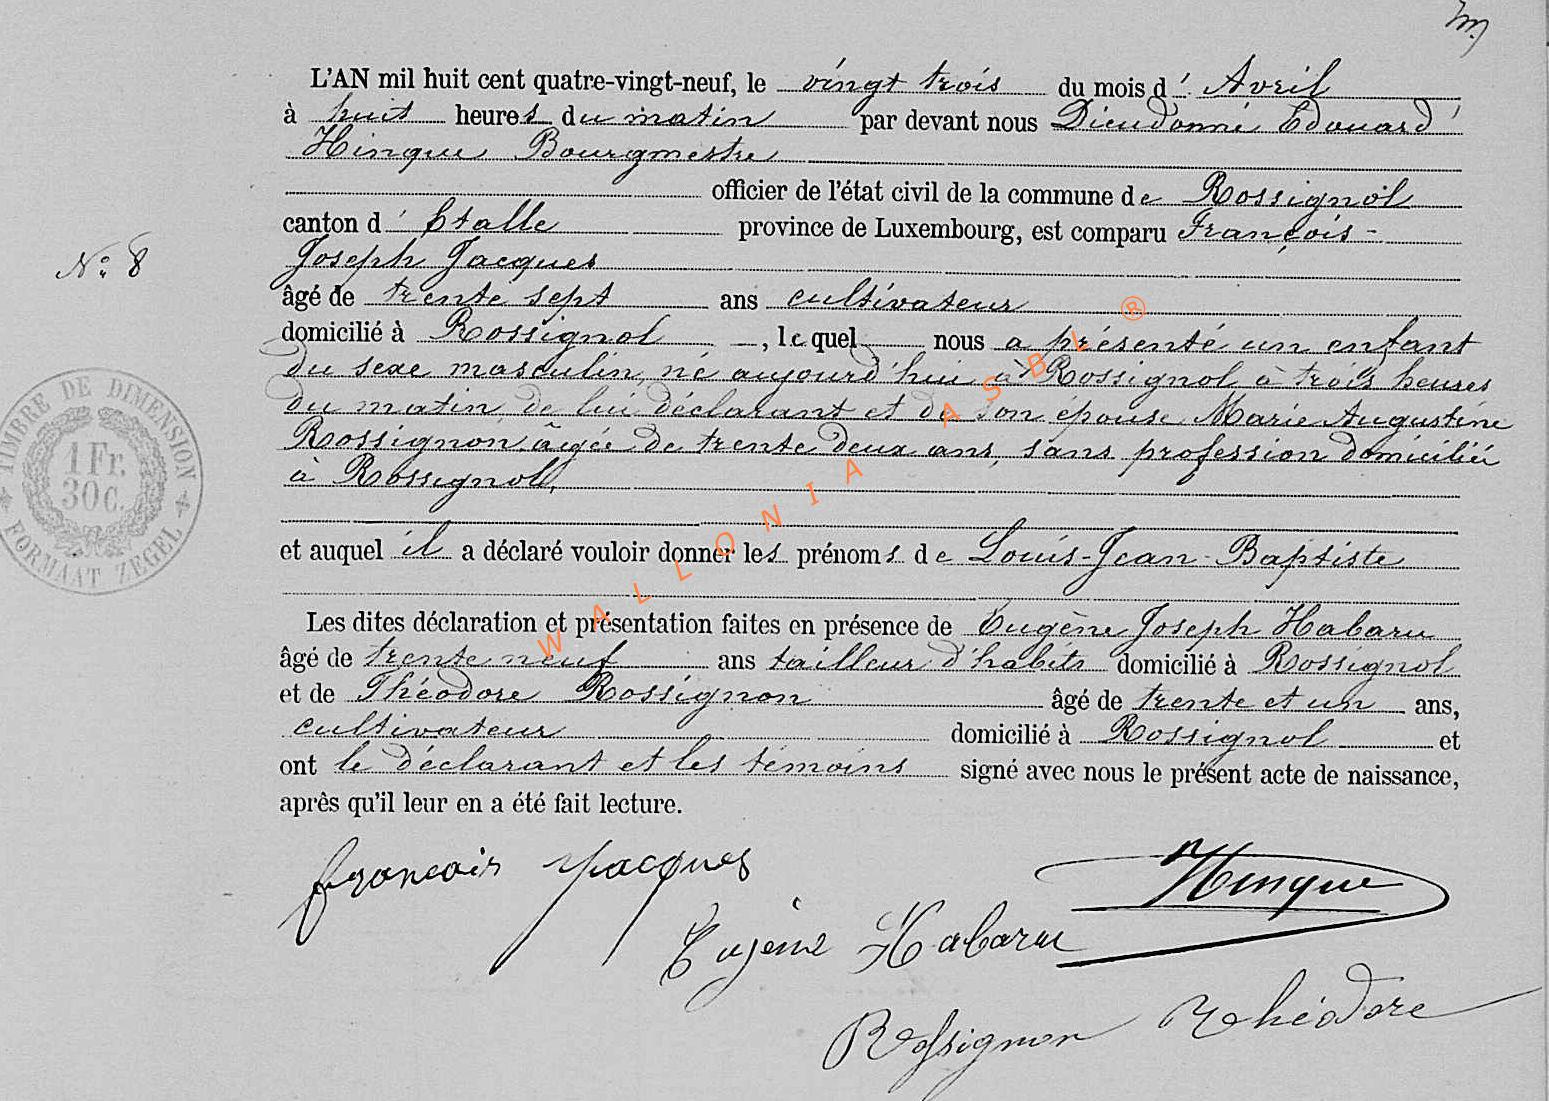 L'AN mil huit cent quatre-vingt-neuf, le vingt trois du mois d' Avril
à huit heures du matin par devant nous Dieudonné Edouard
Hinque Bourgmestre
officier de l'état civil de la commune de Rossignol
canton d' Etalle province de Luxembourg, est comparu François-
Joseph Jacques
N° 8
âgé de trente sept ans cultivateur
domicilié à Rossignol —, lequel nous a présenté un enfant
du sexe masculin, né aujourd'hui à Rossignol à trois heures
du matin de lui déclarant et de son épouse Marie Augustine
Rossignon âgée de trente deux ans, sans profession domiciliée
à Rossignol,
et auquel il a déclaré vouloir donner les prénoms de Louis-Jean-Baptiste
Les dites déclaration et présentation faites en présence de Eugène Joseph Habaru
âgé de trente neuf ans tailleur d'habits domicilié à Rossignol
et de Théodore Rossignon âgé de trente et un ans,
cultivateur domicilié à Rossignol et
ont le déclarant et les témoins signé avec nous le présent acte de naissance,
après qu'il leur en a été fait lecture.
françois Jacques
Hinque
Eugène Habaru
Rossignon Théodore
TIMBRE DE DIMENSION
1 Fr.
30 c.
FORMAAT ZEGEL
WALLONIA ASBL ®